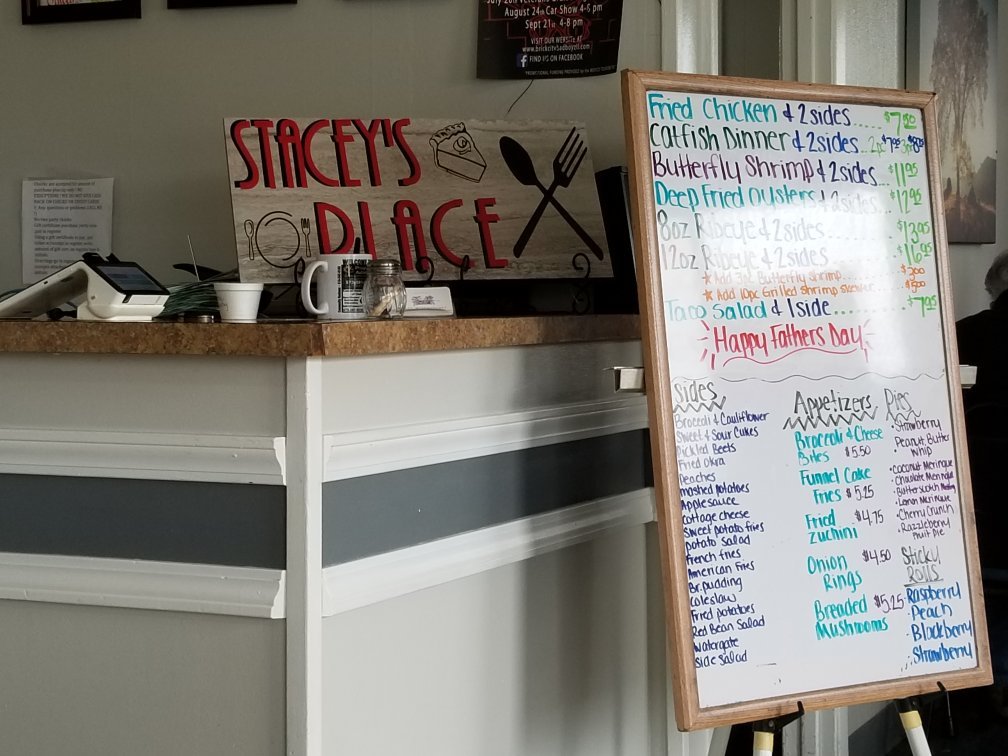 August 24th Car Show 4-8 pm
Sept 21st 4-8 pm
VISIT OUR WEBSITE AT
www.brickcitybadboyzll.com
FIND US ON FACEBOOK
STACEY'S
PLACE
Fried Chicken & 2 sides ..... $7.50
Catfish Dinner & 2 sides ... 2pc $7.95 3pc $8.95
Butterfly Shrimp & 2 sides ... $11.95
Deep Fried Oysters & 2 sides ... $12.95
8oz Ribeye & 2 sides ..... $13.95
12oz Ribeye & 2 sides ..... $16.95
★ Add 3pc Butterfly Shrimp ..... $3.00
★ Add 10pc Grilled Shrimp Skewer ..... $5.00
Taco Salad & 1 side .......... $7.95
Happy Fathers Day
Sides
Broccoli & Cauliflower
Sweet & Sour Cukes
Pickled Beets
Fried Okra
Peaches
mashed potatoes
Applesauce
Cottage cheese
Sweet potato fries
potato salad
french fries
American Fries
Br. pudding
coleslaw
Fried potatoes
Red Bean Salad
Watergate
side salad
Appetizers
Broccoli & Cheese
Bites $5.50
Funnel Cake
Fries $5.25
Fried $4.75
Zuchini
Onion $4.50
Rings
Breaded $5.25
Mushrooms
Pies
• Strawberry
Peanut Butter
Whip
• Coconut Meringue
• Chocolate Meringue
• Butterscotch
• Lemon Meringue
• Cherry Crunch
• Razzleberry
Fruit Pie
Sticky
Rolls
• Raspberry
• Peach
• Blackberry
• Strawberry